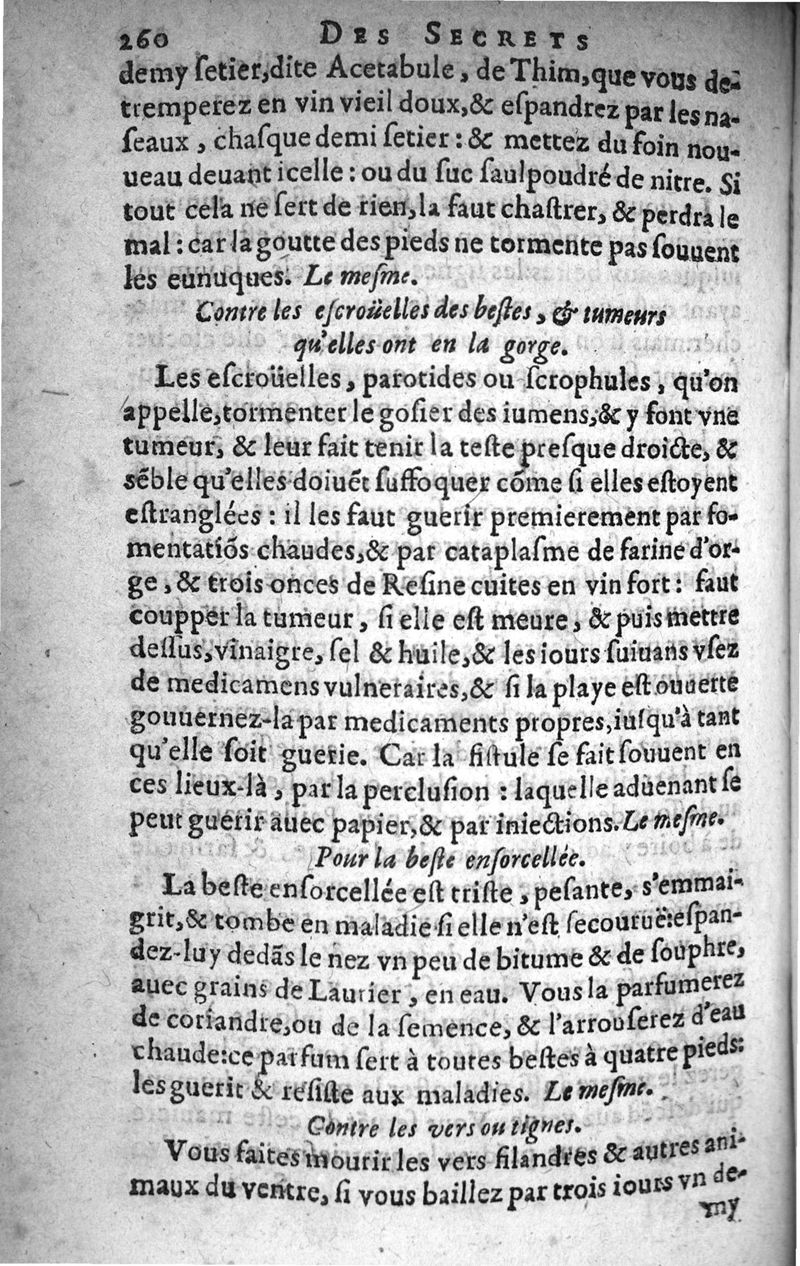 260 DES SECRETS
demy ſetier, dite Acetabule, de Thim, que vous de-
tremperez en vin vieil doux, & eſpandrez par les na-
ſeaux, chaſque demi ſetier : & mettez du foin nou-
ueau deuant icelle : ou du ſuc ſaulpoudré de nitre. Si
tout cela ne ſert de rien, la faut chaſtrer, & perdra le
mal : car la goutte des pieds ne tormente pas ſouuent
les eunuques. Le meſme.
Contre les eſcroüelles des beſtes, & tumeurs
qu'elles ont en la gorge.
Les eſcroüelles, parotides ou ſcrophules, qu'on
appelle, tormenter le goſier des iumens, & y font vne
tumeur, & leur fait tenir la teſte preſque droicte, &
sẽble qu'elles doiuẽt ſuffoquer cõme ſi elles eſtoyent
eſtranglées : il les faut guerir premierement par fo-
mentatiõs chaudes, & par cataplaſme de farine d'or-
ge, & trois onces de Reſine cuites en vin fort : faut
coupper la tumeur, ſi elle eſt meure, & puis mettre
deſſus, vinaigre, ſel & huile, & les iours ſuiuans vſez
de medicamens vulneraires, & ſi la playe eſt ouuerte
gouuernez-la par medicaments propres, iuſqu'à tant
qu'elle ſoit guerie. Car la fiſtule ſe fait ſouuent en
ces lieux-là, par la percluſion : laquelle aduenant ſe
peut guerir auec papier, & par iniections. Le meſme.
Pour la beſte enſorcellée.
La beſte enſorcellée eſt triſte, peſante, s'emmai-
grit, & tombe en maladie ſi elle n'eſt ſecouruë: eſpan-
dez-luy dedãs le nez vn peu de bitume & de ſouphre,
auec grains de Laurier, en eau. Vous la parfumerez
de coriandre, ou de la ſemence, & l'arrouſerez d'eau
chaude: ce parfum ſert à toutes beſtes à quatre pieds:
les guerit & reſiſte aux maladies. Le meſme.
Contre les vers ou tignes.
Vous faites mourir les vers filandres & autres ani-
maux du ventre, ſi vous baillez par trois iours vn de-
my